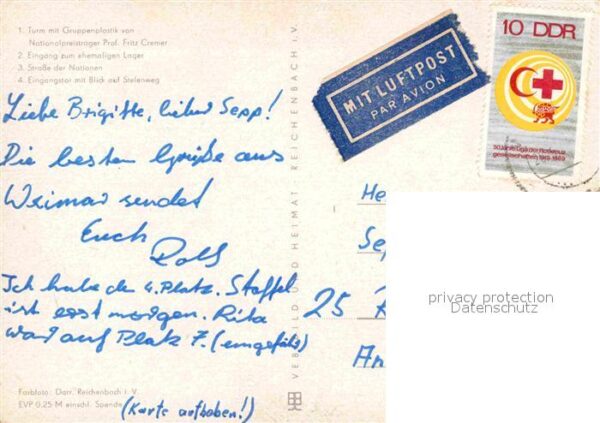 1. Turm mit Gruppenplastik von
Nationalpreisträger Prof. Fritz Cremer
2. Eingang zum ehemaligen Lager
3. Straße der Nationen
4. Eingangstor mit Blick auf Stelenweg
Liebe Brigitte, lieber Sepp!
Die besten Grüße aus
Weimar sendet
Euch
Rolf
Ich habe den 4. Platz. Staffel
ist erst morgen. Rita
ward auf Platz 7. (ungefähr)
(Karte aufheben!)
Farbfoto: Darr, Reichenbach i. V.
EVP 0,25 M einschl. Spende
VERLAG BILD UND HEIMAT REICHENBACH I. V.
MIT LUFTPOST
PAR AVION
10 DDR
50 Jahre Liga der Rotkreuz
gesellschaften 1919-1969
He
Sep
25
An
privacy protection
Datenschutz